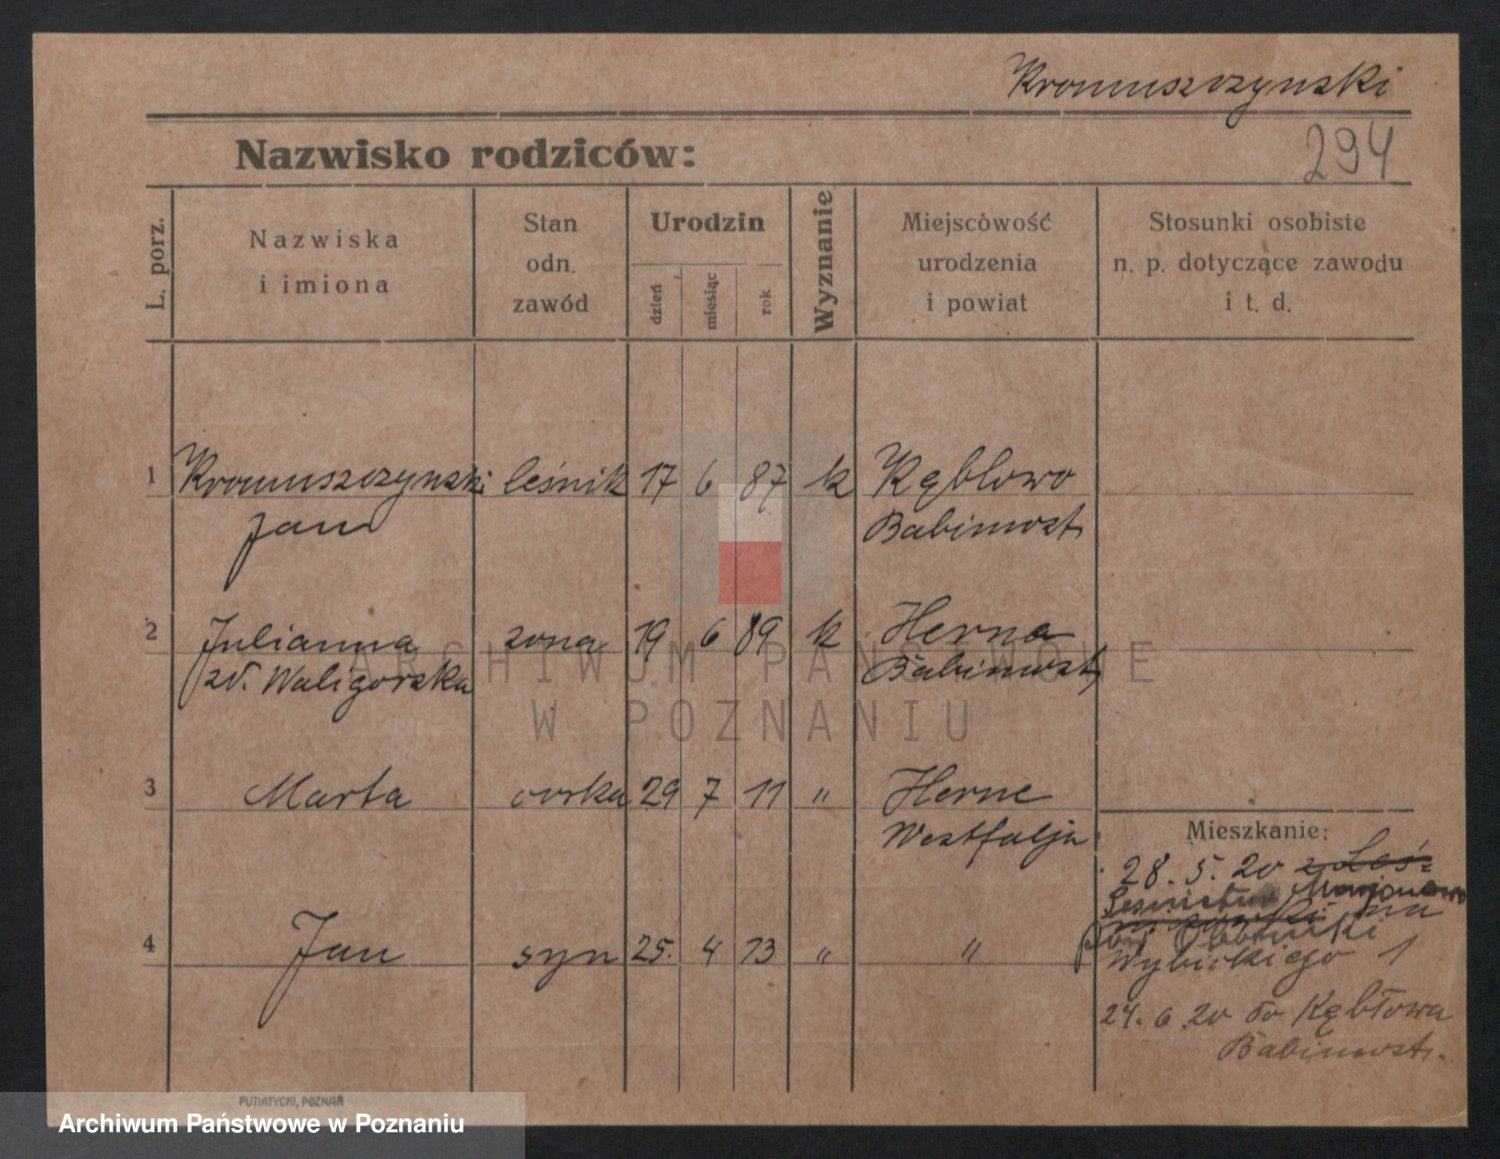 Kromuszczynski
294
Nazwisko rodziców:
L. porz.
Nazwiska
i imiona
Stan
odn.
zawód
Urodzin
dzień
miesiąc
rok
Wyznanie
Miejscówość
urodzenia
i powiat
Stosunki osobiste
n. p. dotyczące zawodu
i t. d.
1 Kromuszczynski leśnik 17 6 87 k Kębłowo
Jan Babimost
2 Julianna zona 19 6 89 k Herne
zd. Waligorska Babimost
3 Marta corka 29 7 11 " Herne
Westfalja
Mieszkanie:
28. 5. 20 z Leś=
Leśnictwo
na
pow Obornicki
Wybickiego 1
4 Jan syn 25. 4 13 " "
24. 6. 20 do Kębłowa
Babimost.
PUTIATYCKI, POZNAŃ
ARCHIWUM PAŃSTWOWE
W POZNANIU
Archiwum Państwowe w Poznaniu